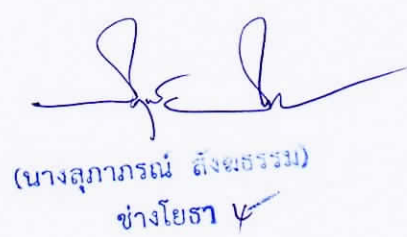 (นางสุภาภรณ์ สังฆธรรม)
ช่างโยธา ๔